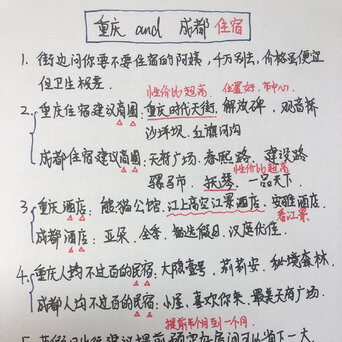 重庆 and 成都 住宿
1. 街边问你要不要住宿的阿姨，千万别去，价格是便宜
但卫生极差.
性价比超高 位置好、市中心
2. 重庆住宿建议商圈：重庆时代天街、解放碑、观音桥
沙坪坝、红旗河沟
成都住宿建议商圈：天府广场、春熙路、建设路
性价比超高
骡马市、
一品天下
3. 重庆酒店：熊猫公馆、江上高空江景酒店、安雅酒店
看江景
成都酒店：亚朵、全季、智选假日、汉庭优佳
4. 重庆人均不过百的民宿：大隐壹号、莉莉安、秘境森林
成都人均不过百的民宿：小屋、喜欢你来、最美天府广场、
提前半个月到一个月.